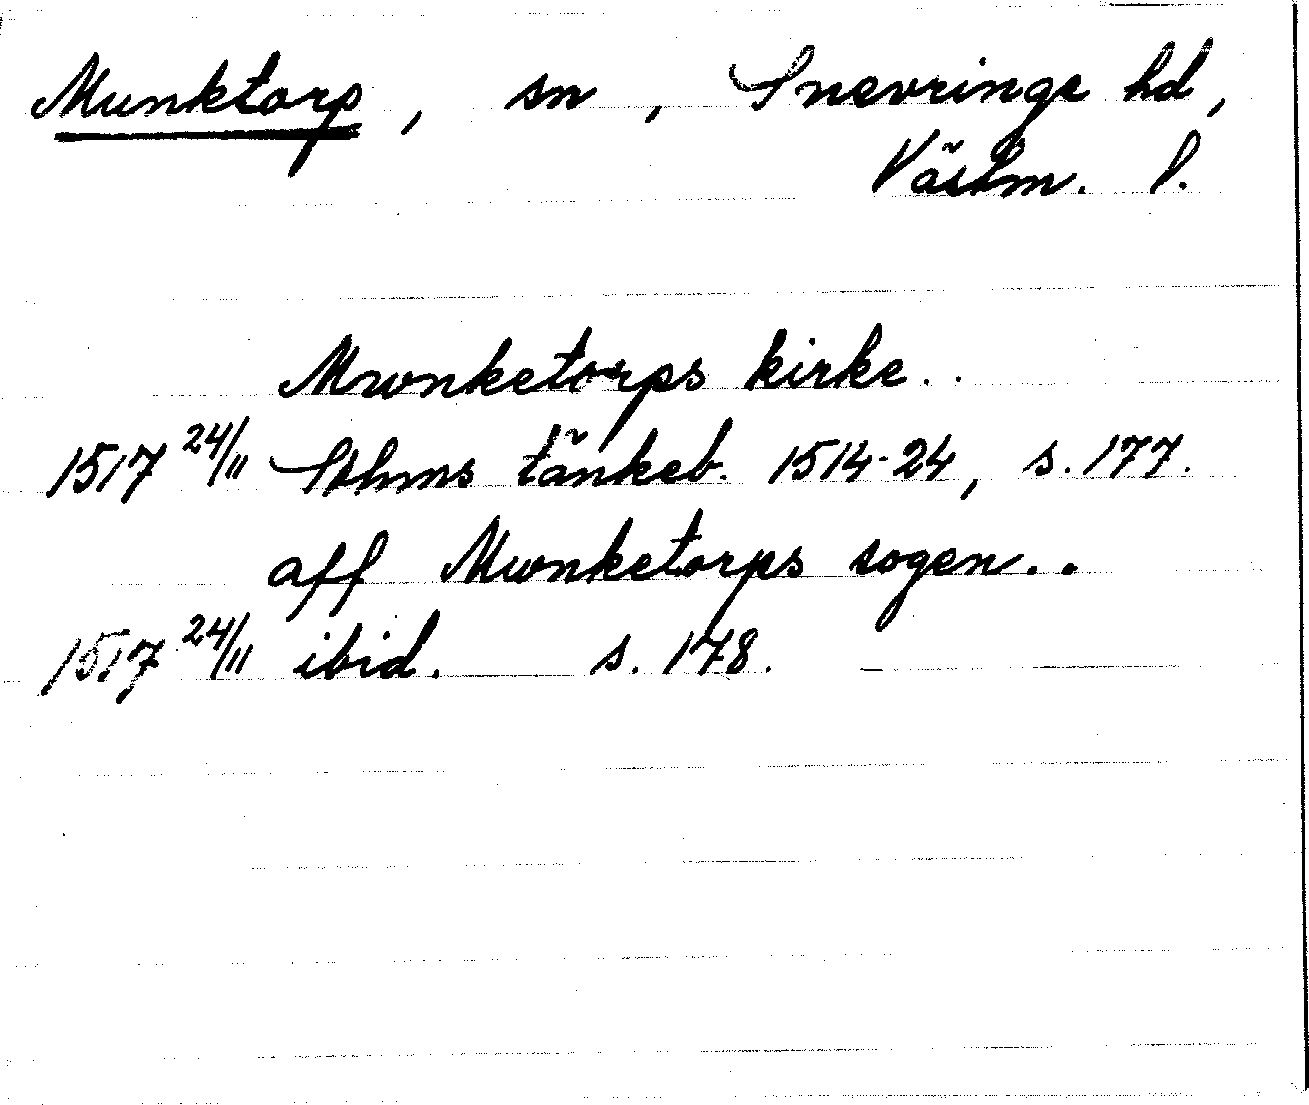 Munktorp, sn, Snevringe hd,
Västm. l.
Mwnketorps kirke..
1517 24/11 Sthms tänkeb. 1514-24, s. 177.
aff Mwnketorps sogen..
1517 24/11 ibid. s. 178.